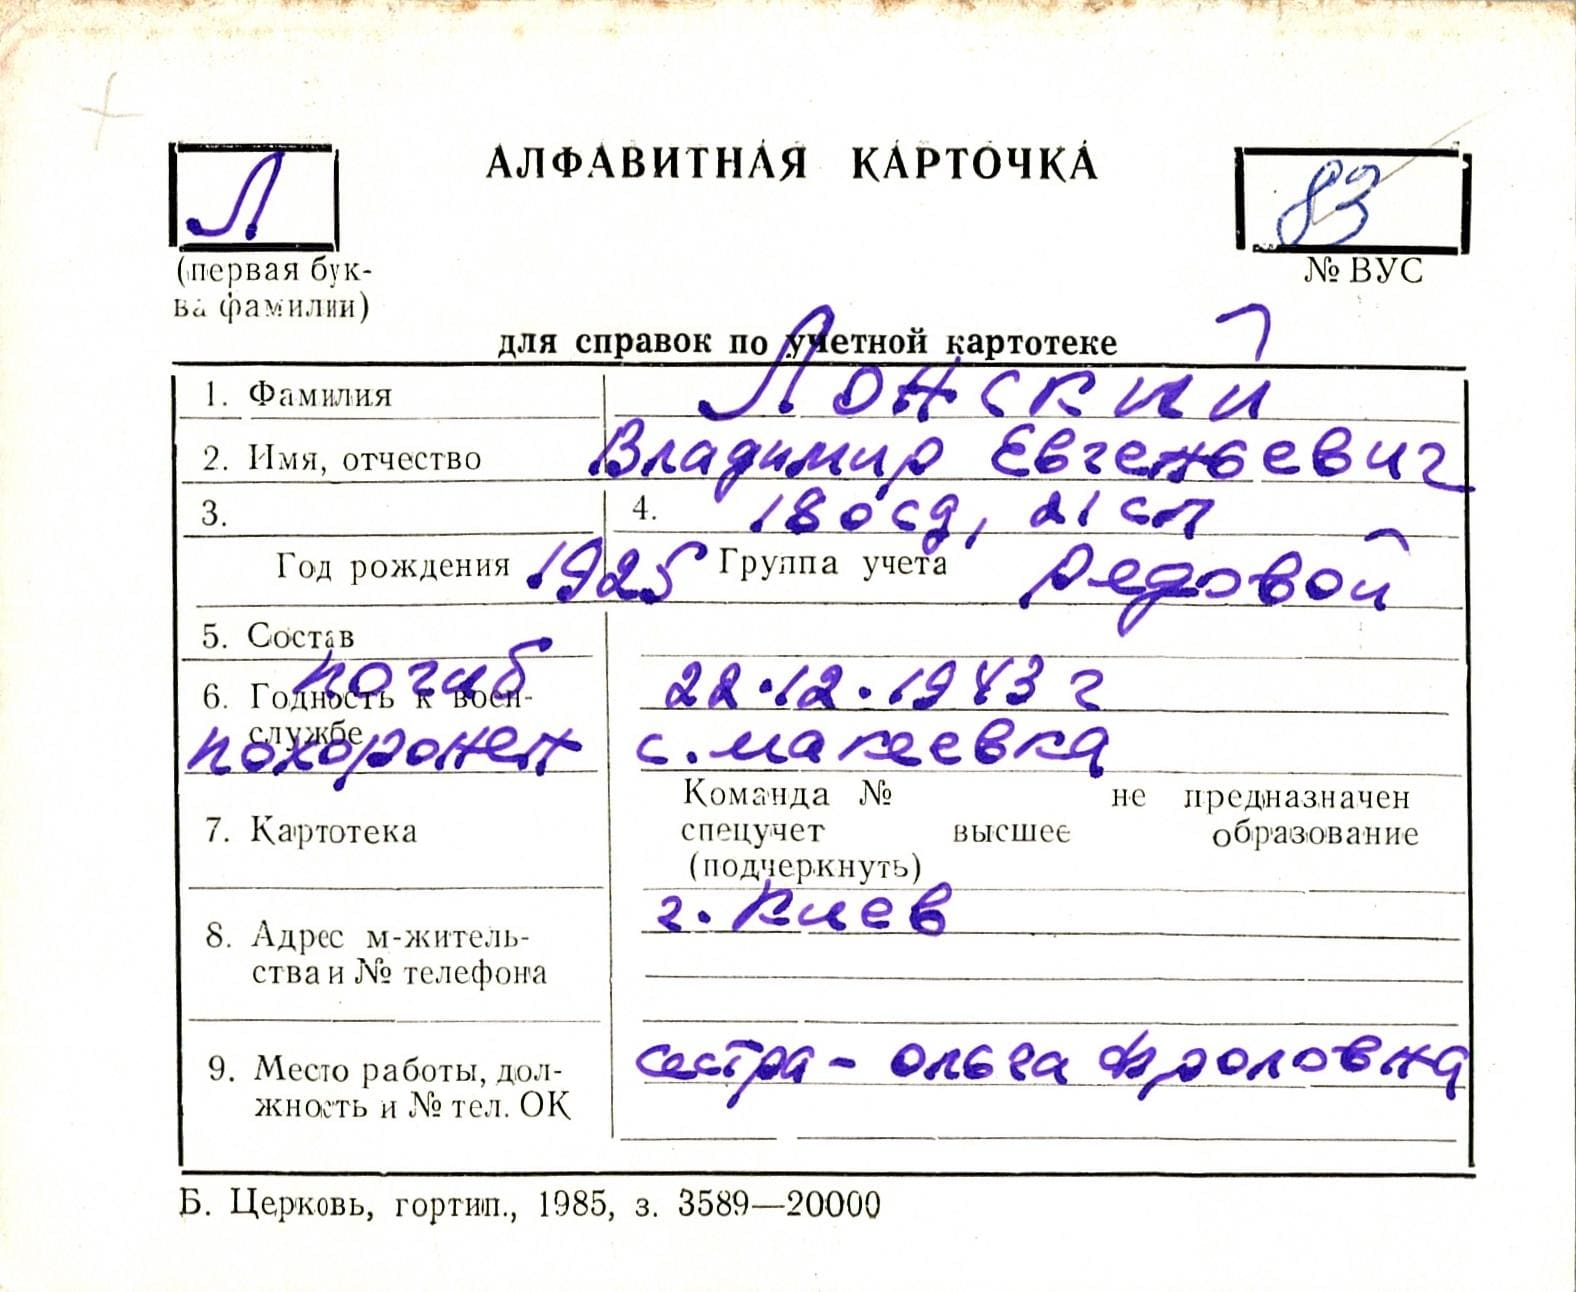 АЛФАВИТНАЯ КАРТОЧКА
Л
83
(первая бук-
ва фамилии)
№ ВУС
для справок по учетной картотеке
1. Фамилия Лонский
2. Имя, отчество Владимир Евгеньевич
3. 4. 180 сд, 21 сп
Год рождения 1925 Группа учета Рядовой
5. Состав
погиб 22.12.1943 г
6. Годность к воен-
службе
похоронен с. Макеевка
Команда № не предназначен
7. Картотека спецучет высшее образование
(подчеркнуть)
г. Киев
8. Адрес м-житель-
ства и № телефона
сестра - Ольга Фроловна
9. Место работы, дол-
жность и № тел. ОК
Б. Церковь, гортип., 1985, з. 3589—20000